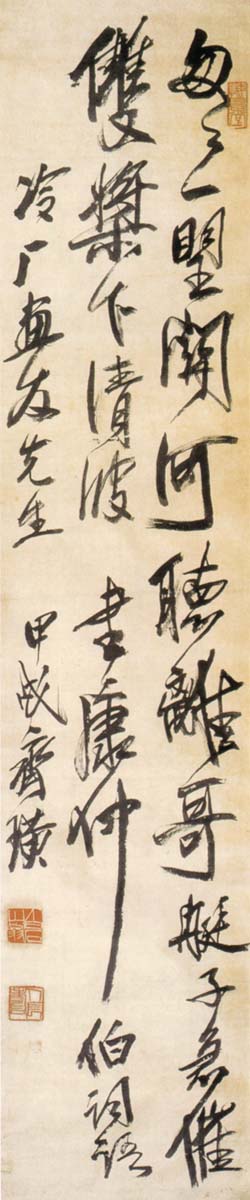 匆匆一望關河聽離哥艇子急催
雙槳下清波 書康仲伯詞語
冷厂畫友先生 甲戌齊璜